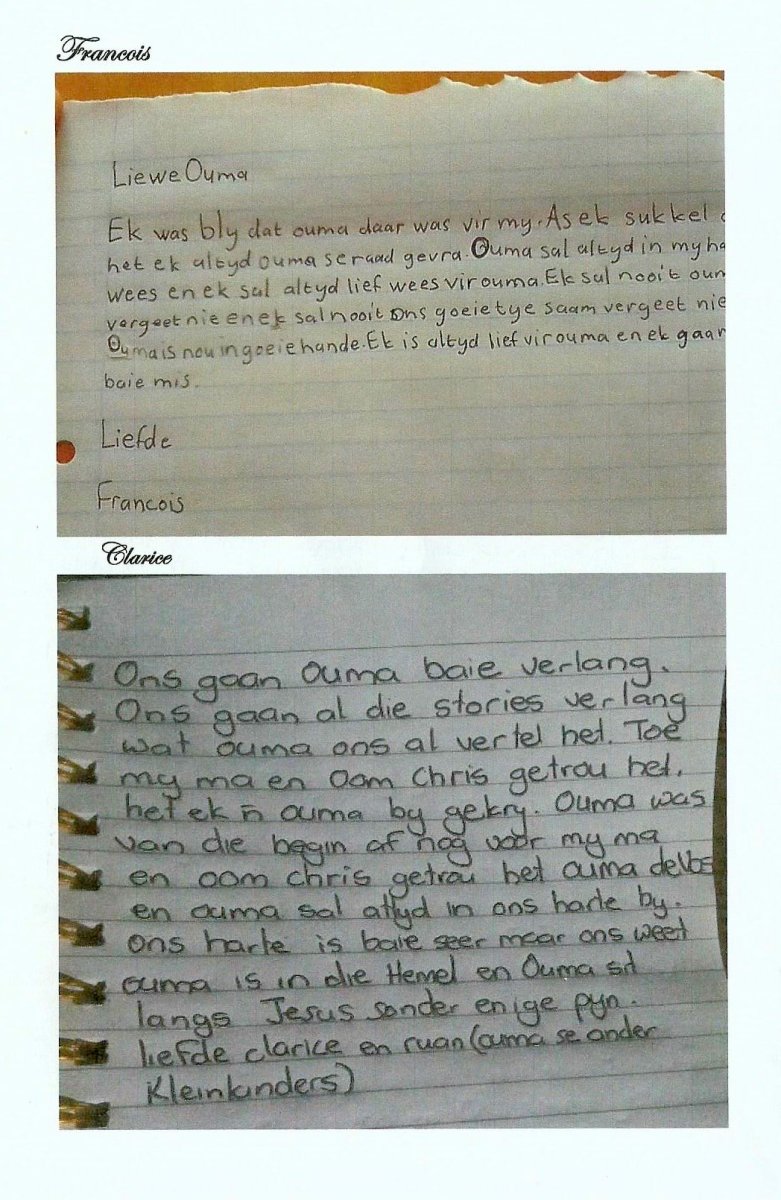 Francois
Liewe Ouma
Ek was bly dat ouma daar was vir my. As ek sukkel
het ek altyd ouma se raad gevra. Ouma sal altyd in my ha
wees en ek sal altyd lief wees vir ouma. Ek sal nooit oum
vergeet nie en ek sal nooit ons goeie tye saam vergeet nie
Ouma is nou in goeie hande. Ek is altyd lief vir ouma en ek gaan
baie mis.
Liefde
Francois
Clarice
Ons gaan Ouma baie verlang.
Ons gaan al die stories verlang
wat ouma ons al vertel het. Toe
my ma en Oom Chris getrou het.
het ek 'n ouma by gekry. Ouma was
van die begin af nog voor my ma
en oom chris getrou het ouma de Vos
en ouma sal altyd in ons harte by.
Ons harte is baie seer maar ons weet
ouma is in die Hemel en Ouma sit
langs Jesus sonder enige pyn.
liefde clarice en ruan (ouma se ander
Kleinkinders)